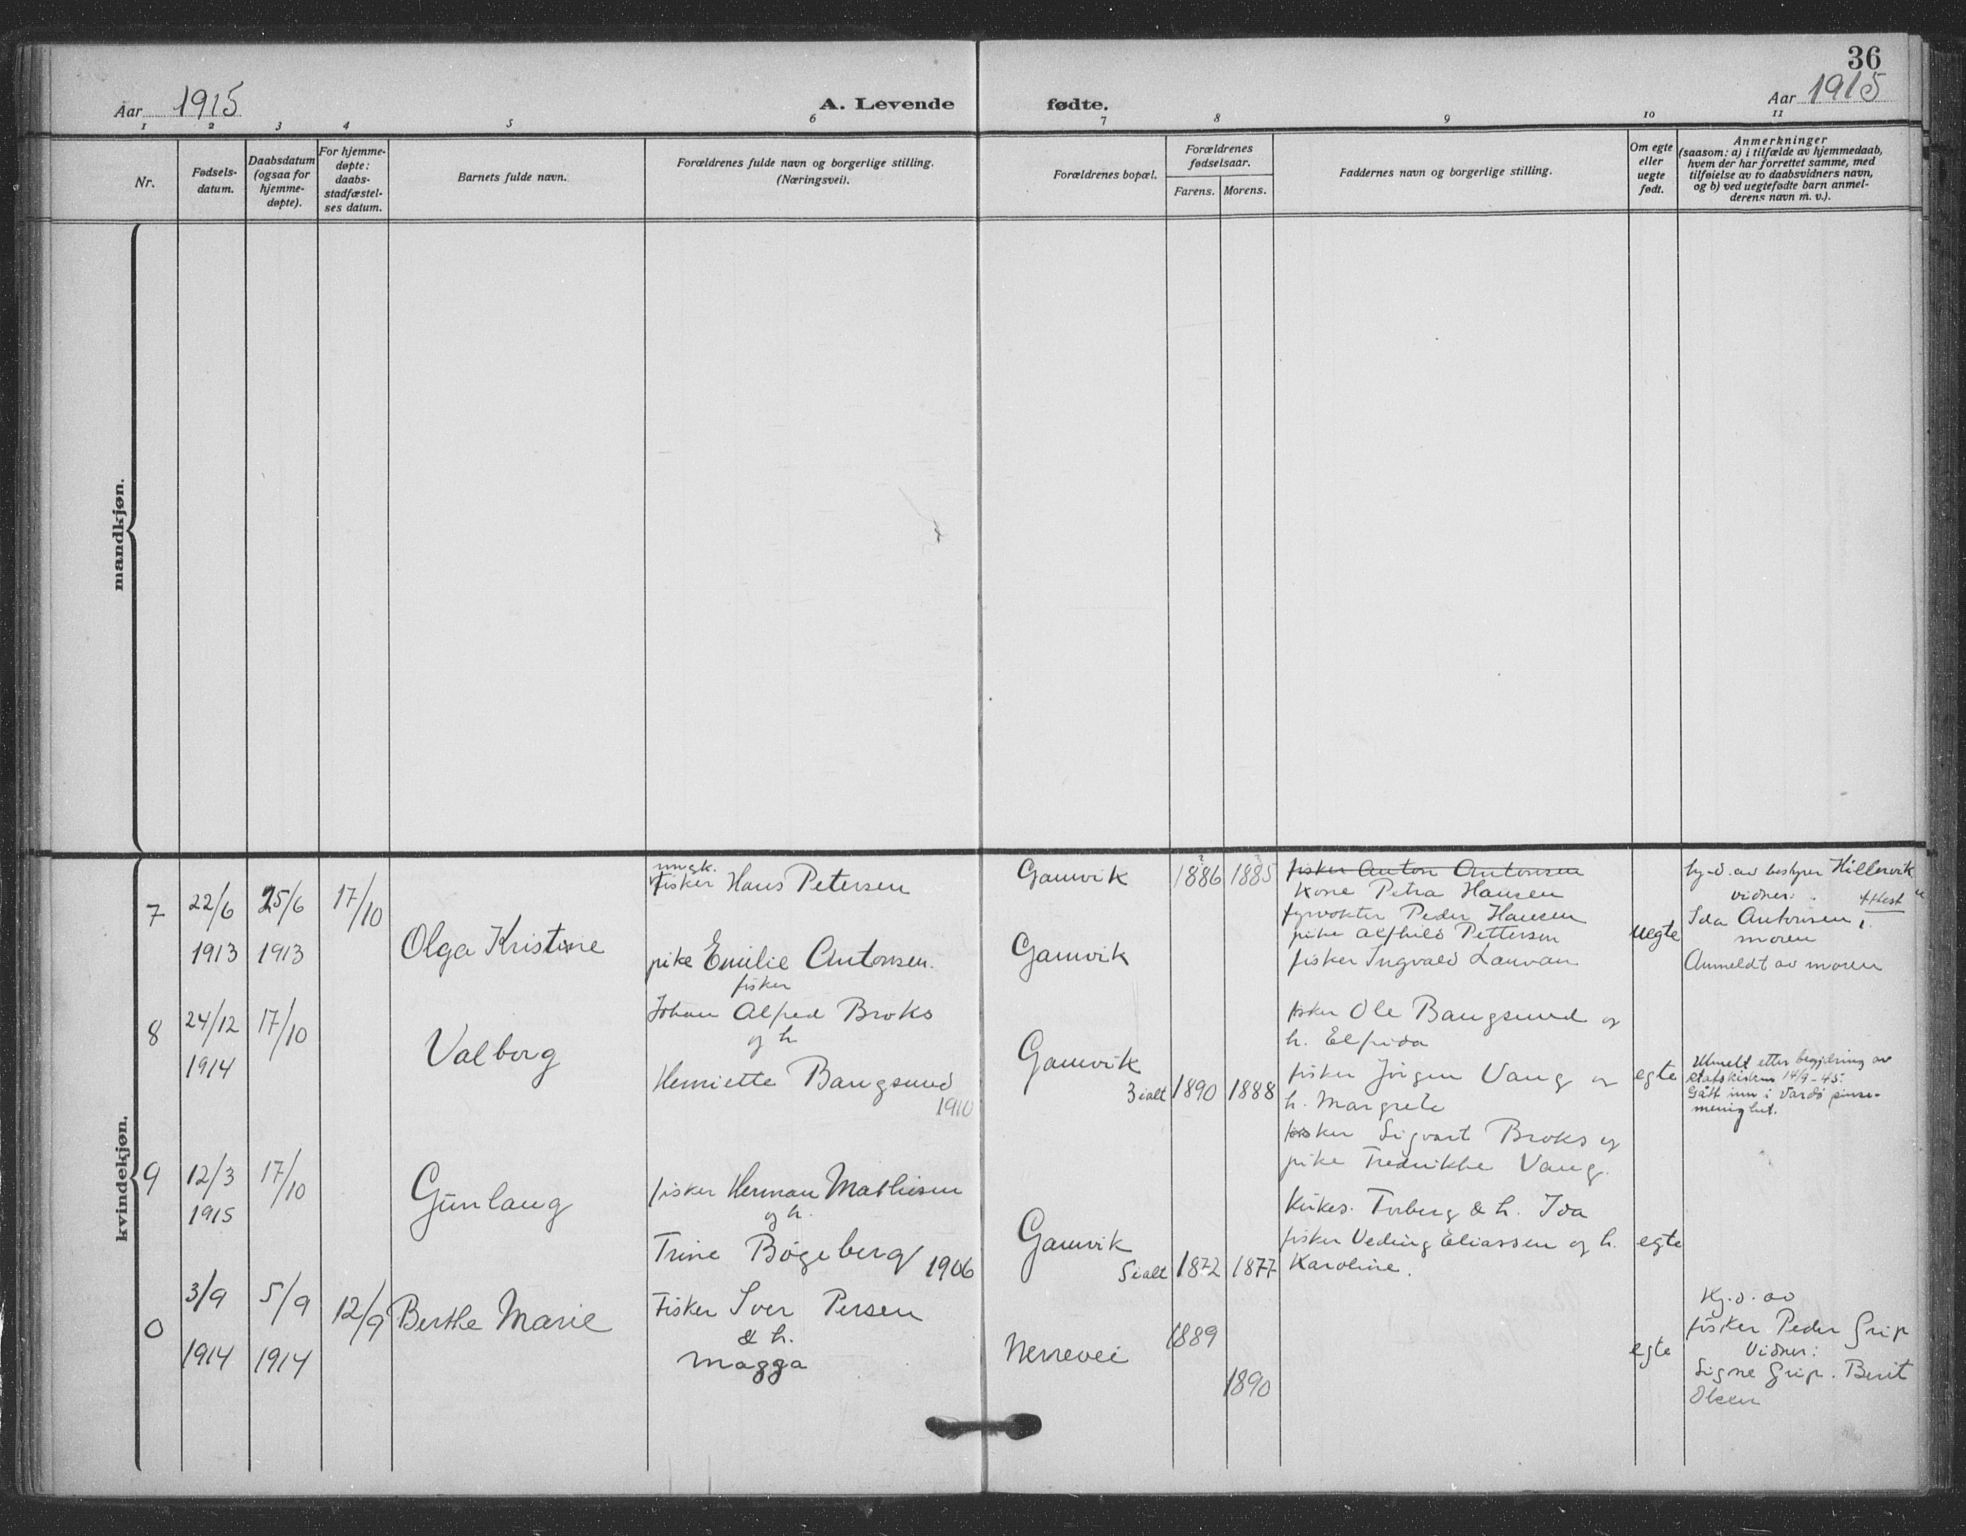 36
Aar 1915
A. Levende
fødte.
Aar 1915
1 2 3 4 5 6 7 8 9 10 11
Nr.
Fødsels-
datum.
Daabsdatum
(ogsaa for
hjemme-
døpte).
For hjemme-
døpte:
daabs-
stadfæstel-
ses datum.
Barnets fulde navn.
Forældrenes fulde navn og borgerlige stilling.
(Næringsvei).
Forældrenes bopæl.
Forældrenes
fødselsaar.
Farens. Morens.
Faddernes navn og borgerlige stilling.
Om egte
eller
uegte
født.
Anmerkninger
(saasom: a) i tilfælde av hjemmedaab,
hvem der har forrettet samme, med
tilføielse av to daabsvidners navn,
og b) ved uegtefødte barn anmel-
derens navn m. v.).
mandkjøn.
kvindekjøn.
7
22/6
1913
25/6
1913
17/10
Olga Kristine
ungk.
fisker Hans Petersen
pike Emilie Antonsen.
Gamvik
Gamvik
1886 1885
fisker Anton Antonsen
Kone Petra Hansen
fyrvokter Peder Hansen
pike Alfhild Pettersen
fisker Ingvald Lauvan
uegte
hj.d. av bestyrer Hillervik
vidner:
Attest
Ida Antonsen
moren
Anmeldt av moren
8
24/12
1914
17/10
Valborg
fisker
Johan Alfred Broks
og h.
Henriette Bangsund
1910
Gamvik
3 ialt
1890 1888
fisker Ole Bangsund og
h. Elfrida
fisker Jörgen Vang og
h. Margrete
fisker Sigvart Broks og
pike Fredrikke Vang.
egte
Utmeldt etter begjæring av
statskirken 14/9-45.
Gått inn i Vardö pinse-
menighet.
9
12/3
1915
17/10
Gunlaug
fisker Herman Mathisen
og h.
Trine Bøgeberg 1906
Gamvik
5 ialt
1872 1877
Kirkes. Torberg & h. Ida
fisker Veding Eliassen og h.
Karoline.
egte
0
3/9
1914
5/9
1914
12/9
Berthe Marie
Fisker Iver Persen
& h.
Magga
Nervei
1889
1890
egte
Hj.d. av
fisker Peder Grip
Vidner:
Signe Grip. Berit
Olsen